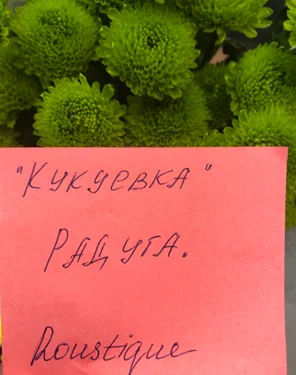 "Кукуевка"
Радуга.
Roustique